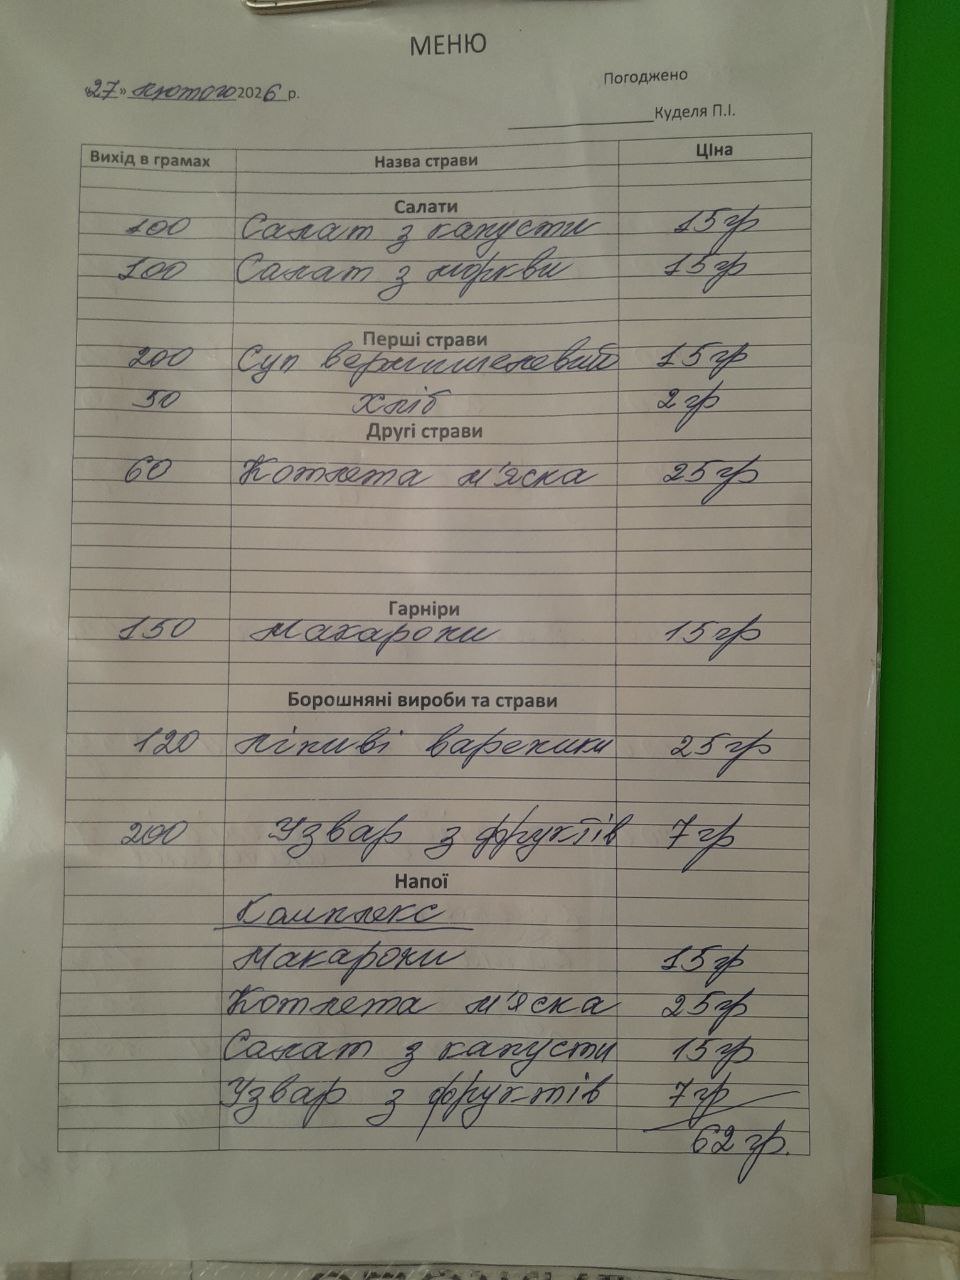 МЕНЮ
Погоджено
«27» лютого 2026 р.
Куделя П.І.
Вихід в грамах Назва страви Ціна
Салати
100 Салат з капусти 15гр
100 Салат з моркви 15гр
Перші страви
200 Суп вермишелевий 15гр
30 хліб 2гр
Другі страви
60 Котлета м'яска 25гр
Гарніри
150 Макарони 15гр
Борошняні вироби та страви
120 ліниві вареники 25гр
200 Узвар з фруктів 7гр
Напої
Комплекс
Макарони 15гр
Котлета м'яска 25гр
Салат з капусти 15гр
Узвар з фруктів 7гр
62гр.